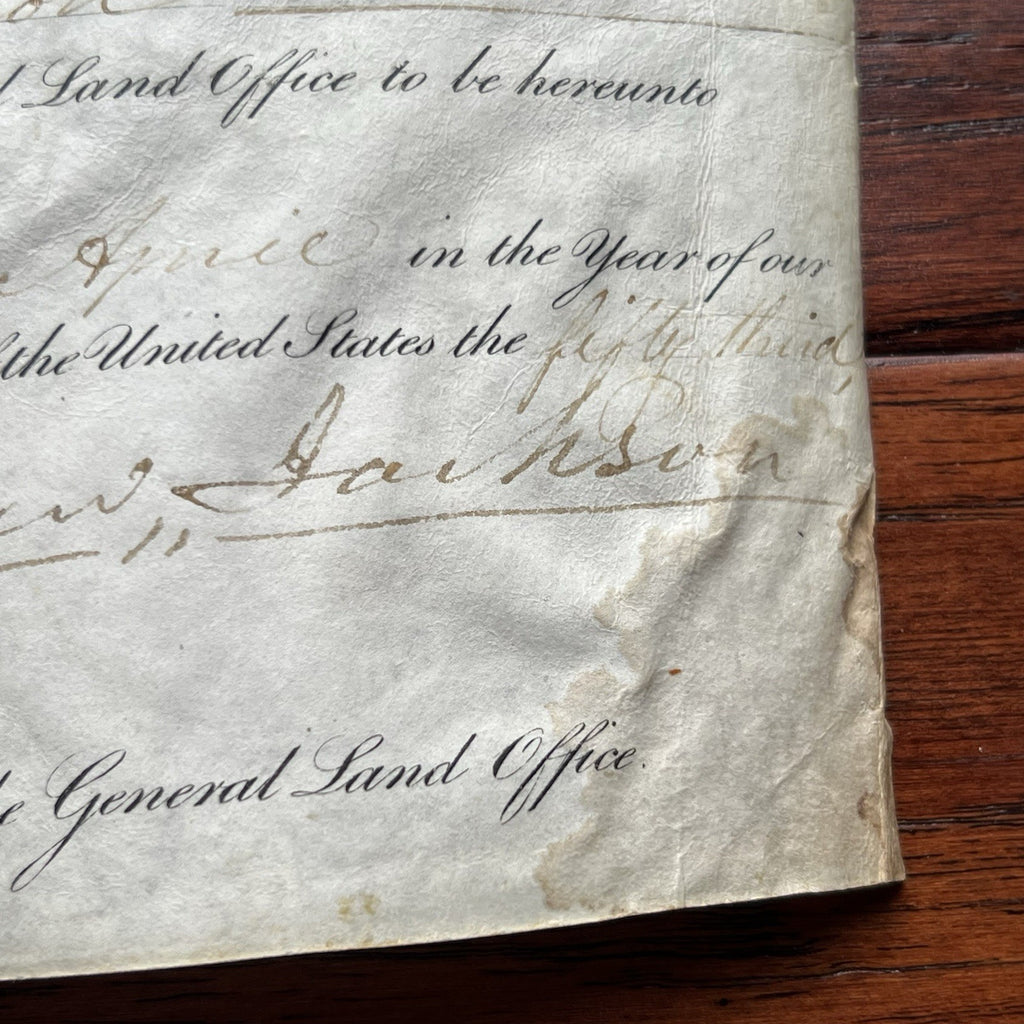 Land Office to be hereunto
April in the Year of our
the United States the fifty third
Jackson
General Land Office.